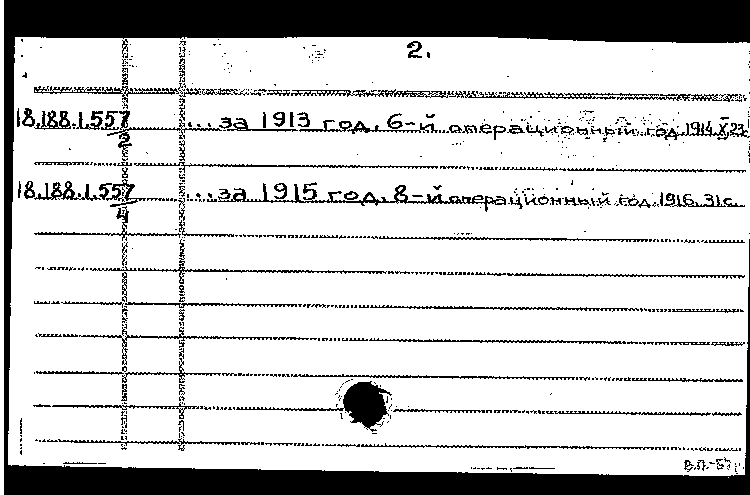 2.
18.188.1.557/2 ...за 1913 год. 6-й операционный год. 1914. X, 23
18.188.1.557/4 ...за 1915 год. 8-й операционный год. 1916. 31с.